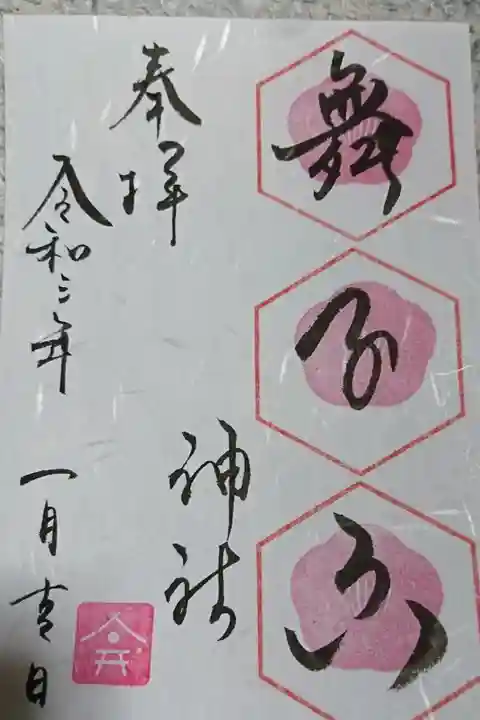 舞子六
神社
奉拝
令和三年 一月吉日